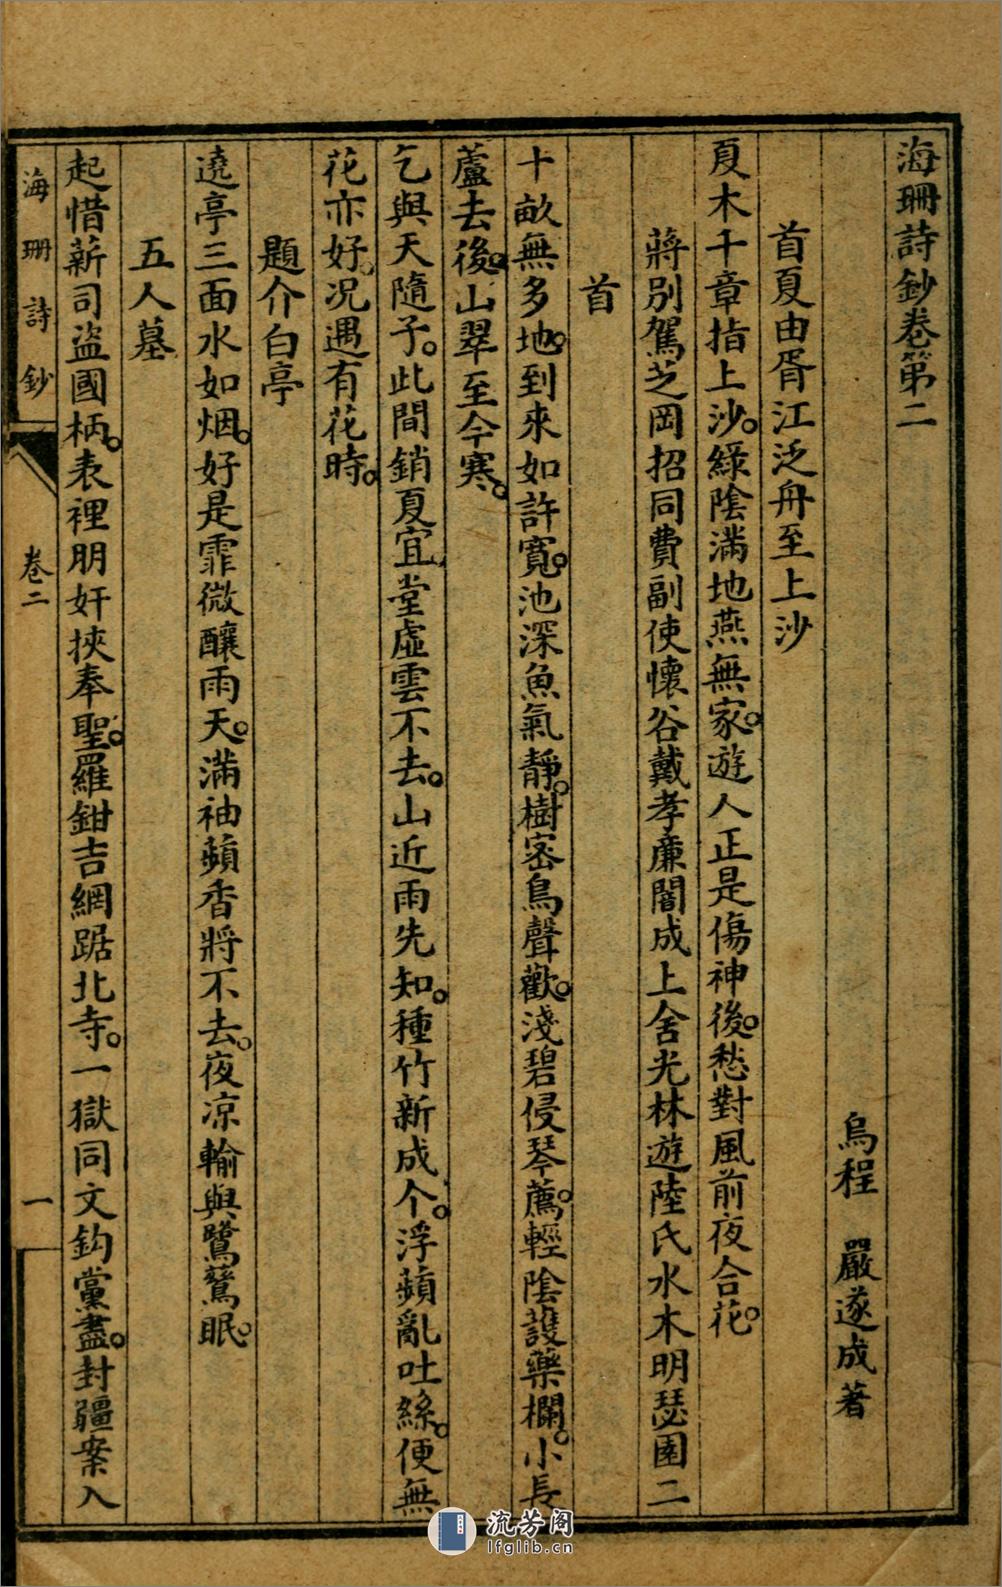 海珊詩鈔卷第二
烏程　嚴遂成著
首夏由胥江泛舟至上沙
夏木千章指上沙。綠陰滿地燕無家。遊人正是傷神後。愁對風前夜合花。
蔣別駕芝岡招同費副使懷谷戴孝廉闇成上舍光林遊陸氏水木明瑟園二
首
十畝無多地。到來如許寬。池深魚氣靜。樹密鳥聲歡。淺碧侵琴薦。輕陰護藥欄。小長
蘆去後。山翠至今寒。
乞與天隨子。此間銷夏宜。堂虛雲不去。山近雨先知。種竹新成个。浮蘋亂吐絲。便無
花亦好。况遇有花時。
題介白亭
遶亭三面水如烟。好是霏微釀雨天。滿袖蘋香將不去。夜凉輸與鷺鷥眠。
五人墓
起惜薪司盜國柄。表裡朋奸挾奉聖。羅鉗吉網踞北寺。一獄同文鈎黨盡。封疆案入
海珊詩鈔
卷二
一
流芳阁
lfglib.cn